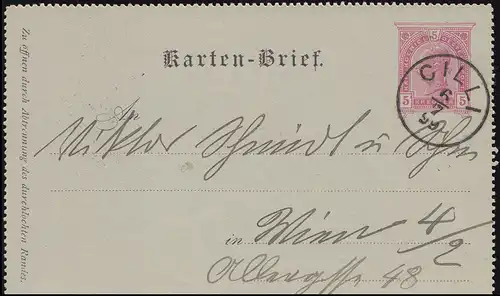 Karten-Brief.
5
5 5
CILLI
Viktor Schmidt u Söhne
in Wien 4/2
Alleegasse 48
Zu öffnen durch Abtrennung des durchlochten Randes.